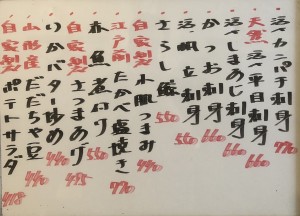 活〆カンパチ刺身 770
天然 活〆平目刺身 660
活〆しまあじ刺身 660
かつお刺身 660
活帆立刺身 550
〆鯖 550
自家製 小肌つまみ 440
江戸前 たかべ塩焼き 770
赤魚煮付 550
自家製 さつまあげ 495
いかバター炒め 440
山形産 だだちゃ豆 440
自家製 ポテトサラダ 418